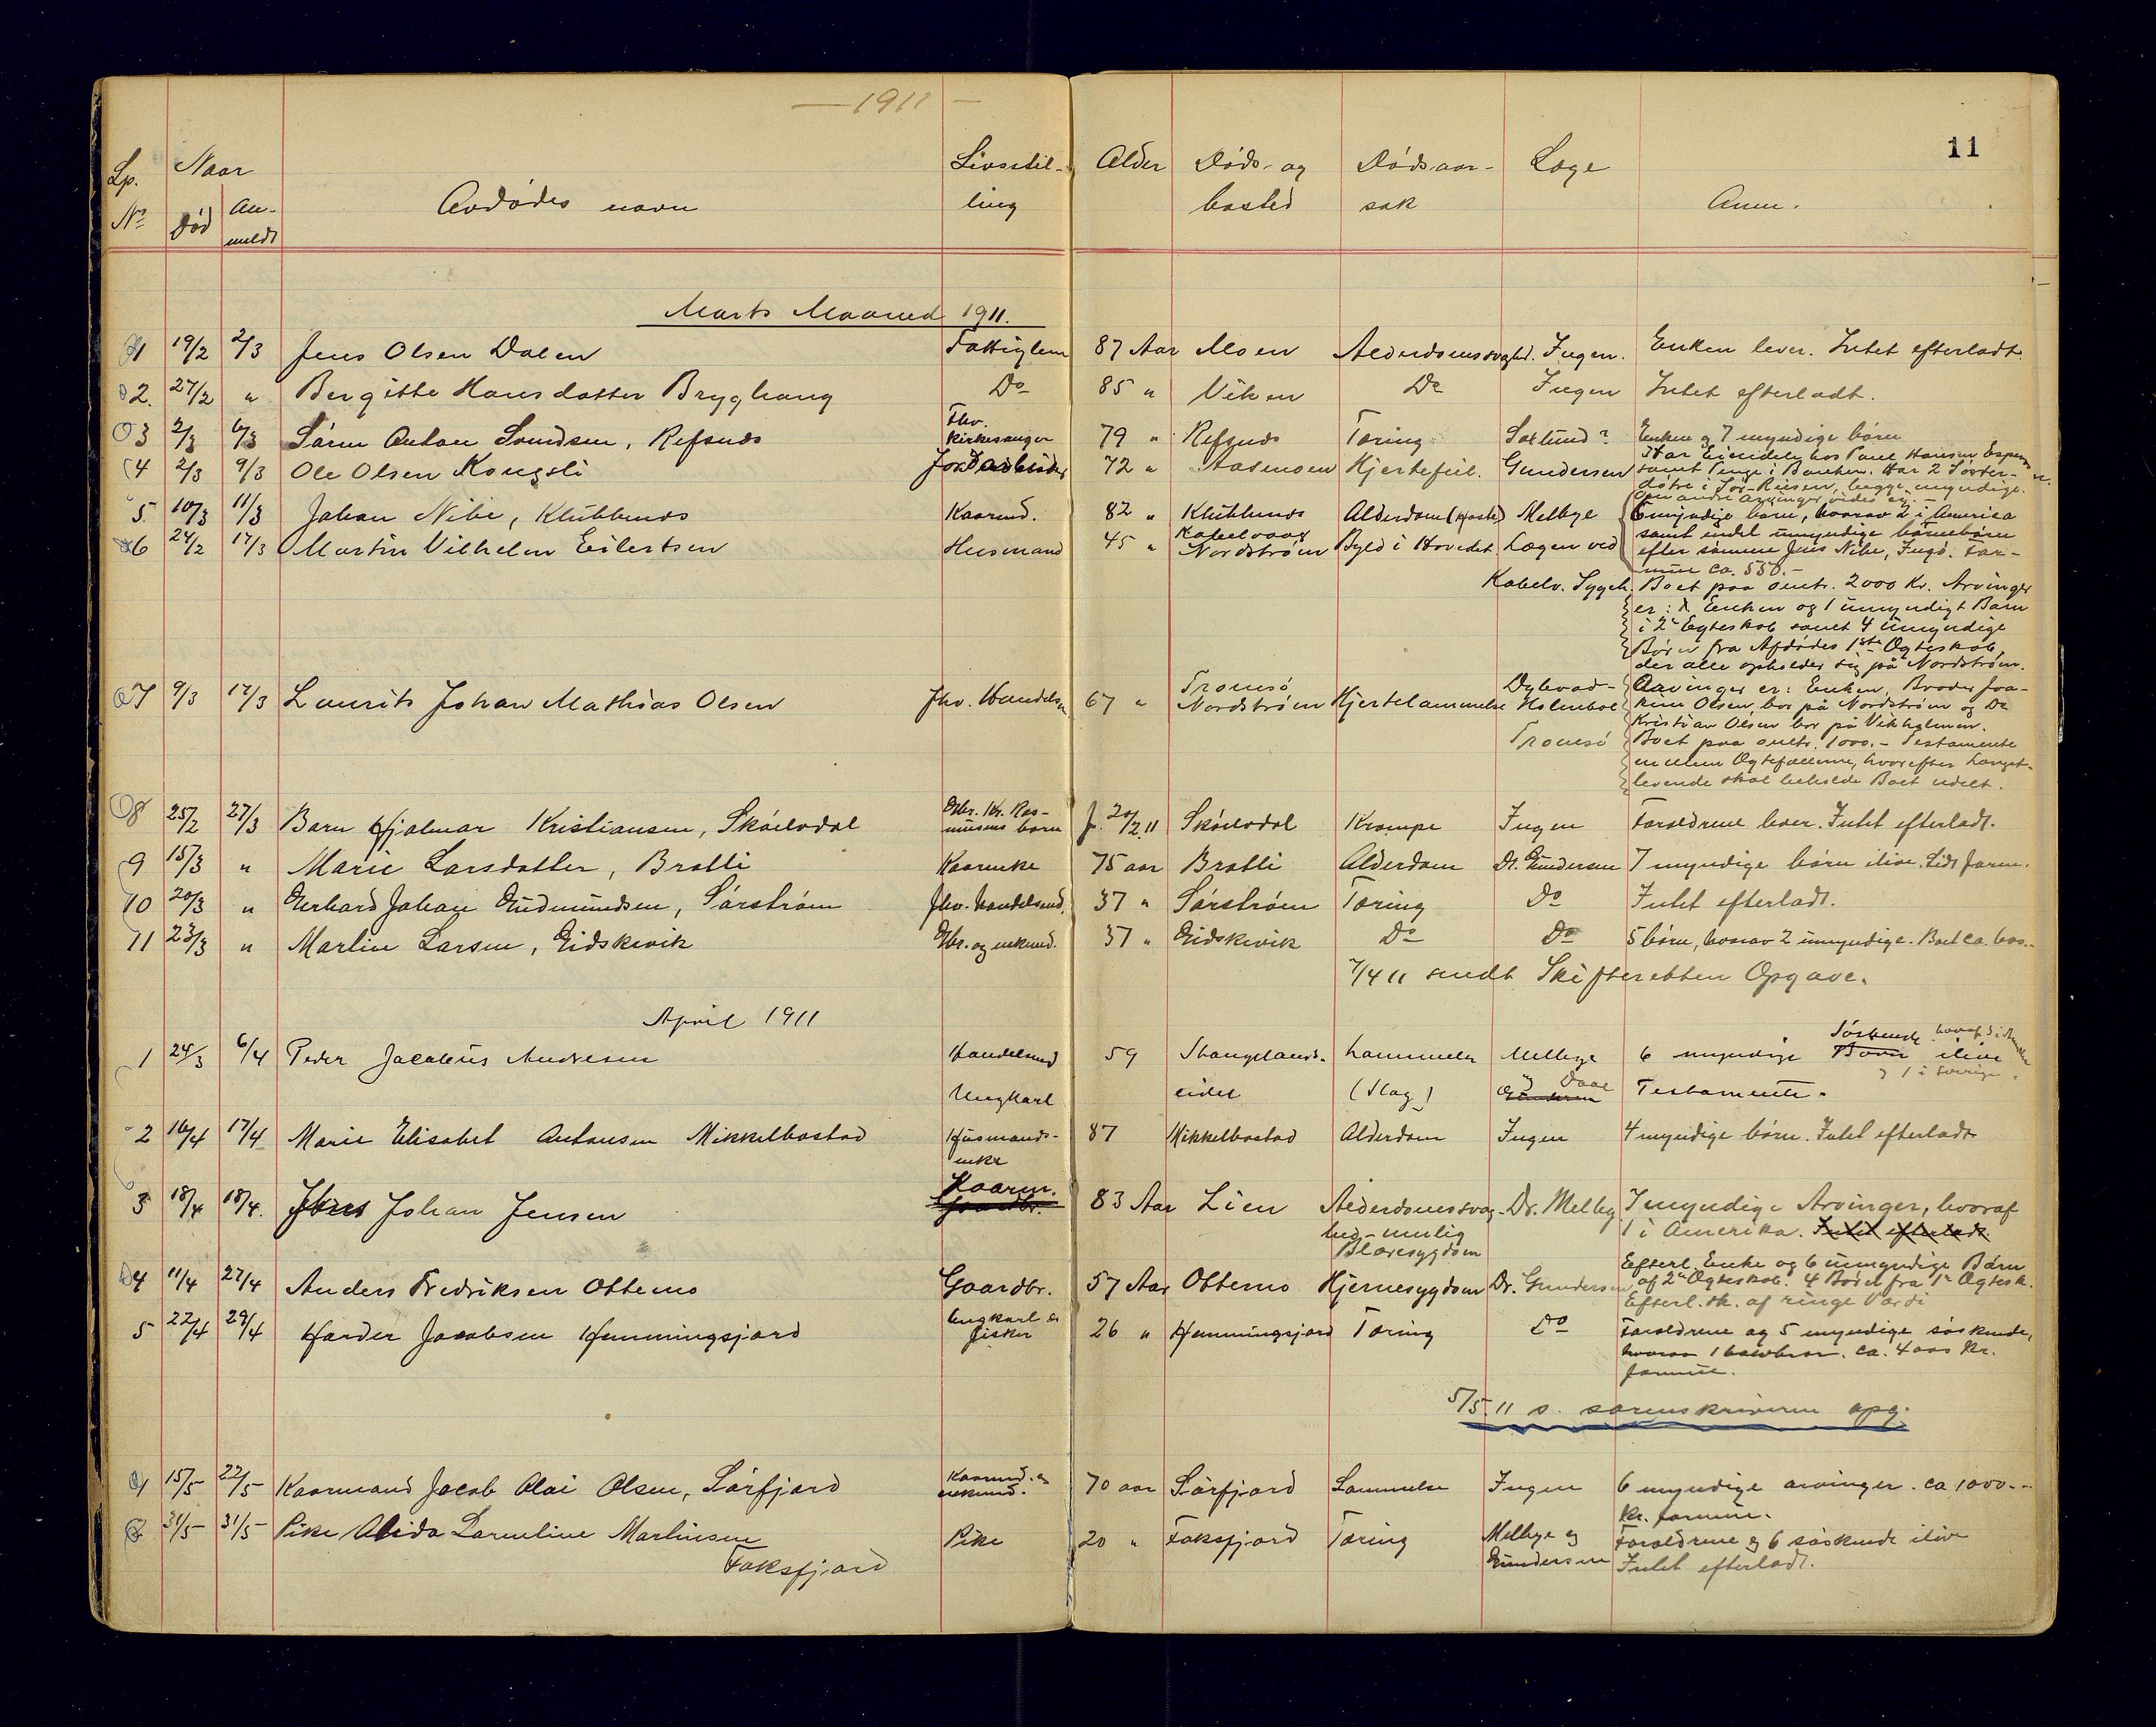 — 1911 —
11
Lp. Nº Naar Død An- meldt Avdødes navn Livsstil- ling Alder Døds- og bosted Dødsaar- sak Læge Anm.
Marts Maaned 1911.
1 19/2 2/3 Jens Olsen Dalen Fattiglem 87 Aar Moen Alderdomssvaghed. Ingen. Enken lever. Intet efterladt.
2. 27/2 " Bergitte Hansdatter Bryghaug Do 85 " Viken Do Ingen Intet efterladt.
3 2/3 6/3 Søren Anton Svendsen, Refsnes Fhv. Kirkesanger 79 " Refsnes Tæring Saxlund? Enken og 7 myndige børn
4 2/3 9/3 Ole Olsen Kongsli Jordarbeider 72 " Aasmoen Hjertefeil. Gundersen Har Eiendele hos Paul Hansen Espenes
samt Penge i Banken. Har 2 Søster-
døtre i Sør-Reisen, begge myndige.
Om andre arvinger vides ej. -
5. 10/3 11/3 Johan Nibe, Klubbenes Kaarmd. 82 " Klubbnes Alderdom (Hoste) Melbye 6 myndige børn, hvorav 2 i America
samt endel umyndige børnebørn
6 24/2 17/3 Martin Vilhelm Eilertsen Husmand 45 " Kabelvaag Nordstrøm Byld i Hovedet. Lægen ved efter sønnen Jens Nibe, Ingø. For-
mue ca. 550.-
Kabelv. Sygeh. Boet paa omtr. 2000 Kr. Arvinger
er: Enken og 1 umyndigt Barn
i 2det Egteskab samt 4 umyndige
Børn fra Afdødes 1ste Ægteskab,
der alle opholder sig på Nordstrøm.
7 9/3 17/3 Laurits Johan Mathias Olsen Fhv. Handelsm. 67 " Tromsø Nordstrøm Hjertelammelse Dybvad- Holmboe Tromsø Arvinger er: Enken, Broder Joa-
kim Olsen, bor på Nordstrøm og Do
Kristian Olsen bor på Vikholmen.
Boet paa omtr. 1000.- Testamente
mellem Ægtefællerne, hvorefter Længst-
levende skal beholde Boet udelt.
8 25/2 27/3 Barn Hjalmar Kristiansen, Skøelvdal Gbr. Kr. Ras- musens barn f. 20/2.11 Skøelvdal Krampe Ingen Forældrene lever. Intet efterladt.
9 15/3 " Marie Larsdatter, Bratli Kaarenke 75 aar Bratli Alderdom Dr. Gundersen 7 myndige børn ilive. Lidt form.
10 20/3 " Gerhard Johan Gudmundsen, Sørstrøm fhv. handelsmd. 37 " Sørstrøm Tæring Do Intet efterladt.
11 23/3 " Martin Larsen, Eidskevik Gbr. og enkemd. 37 " Eidskevik Do Do 5 børn, hvorav 2 umyndige. Boet ca. 600.-
7/4 11 sendt Skifteretten Opgave.
April 1911
1 24/3 6/4 Peder Jacobeus Andresen Handelsmd 59 Stangelands- Lammelse Melbye 6 myndige Børn Søskende ilive
og 1 i Sverige.
Ungkarl eidet (Slag) Gundersen og Daae Testamente.
2 16/4 17/4 Marie Elisabet Antonsen Mikkelbostad Husmands- enke 87 Mikkelbostad Alderdom Ingen 4 myndige børn. Intet efterladt
3 18/4 18/4. Johan Jensen Kaarm. Gaardbr. 83 Aar Lien Alderdomssvag- hed - mulig Blæresygdom Dr. Melby 7 myndige Arvinger, hvoraf
1 i Amerika. Intet efterladt.
4 11/4 27/4 Anders Fredriksen Ottemo Gaardbr. 57 Aar Ottemo Hjernesygdom Dr. Gundersen Efterl. Enke og 6 umyndige Børn
af 2det Ægteskab. 4 Børn fra 1ste Ægtesk.
Efterl. sk. af ringe Værdi
5 22/4 29/4 Harder Jacobsen Hemmingsjord Ungkarl og fisker 26 " Hemmingsjord Tæring Do Forældrene og 5 myndige søskende,
hvorav 1 halvbror. ca. 400 Kr.
formue.
5/5.11 s. sorenskriveren opg.
1 15/5 22/5 Kaarmand Jacob Olai Olsen, Sørfjord Kaarmd. og enkemd. 70 aar Sørfjord Lammelse Ingen 6 myndige arvinger. ca 1000.-
Kr. formue.
2 31/5 31/5 Pike Alida Dorneline Martinsen Foksfjord Pike 20 " Foksfjord Tæring Melbye og Gundersen Forældrene og 6 søskende ilive
Intet efterladt.